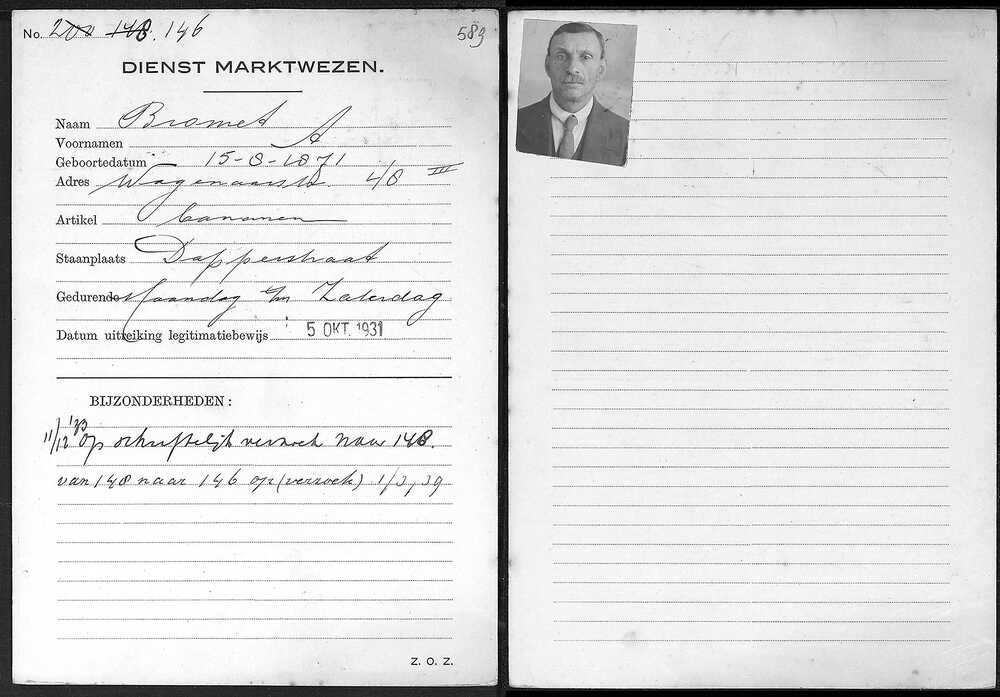 No. 200 148. 146
589
DIENST MARKTWEZEN.
Naam Bromet
Voornamen A
Geboortedatum 15-8-1871
Adres Wagenaarstr. 48 III
Artikel Bananen
Staanplaats Dapperstraat
Gedurende Maandag t/m Zaterdag
Datum uitreiking legitimatiebewijs 5 OKT. 1931
BIJZONDERHEDEN:
11/12 '33 op schriftelijk verzoek naar 148.
van 148 naar 146 op (verzoek) 1/3, 39
Z. O. Z.